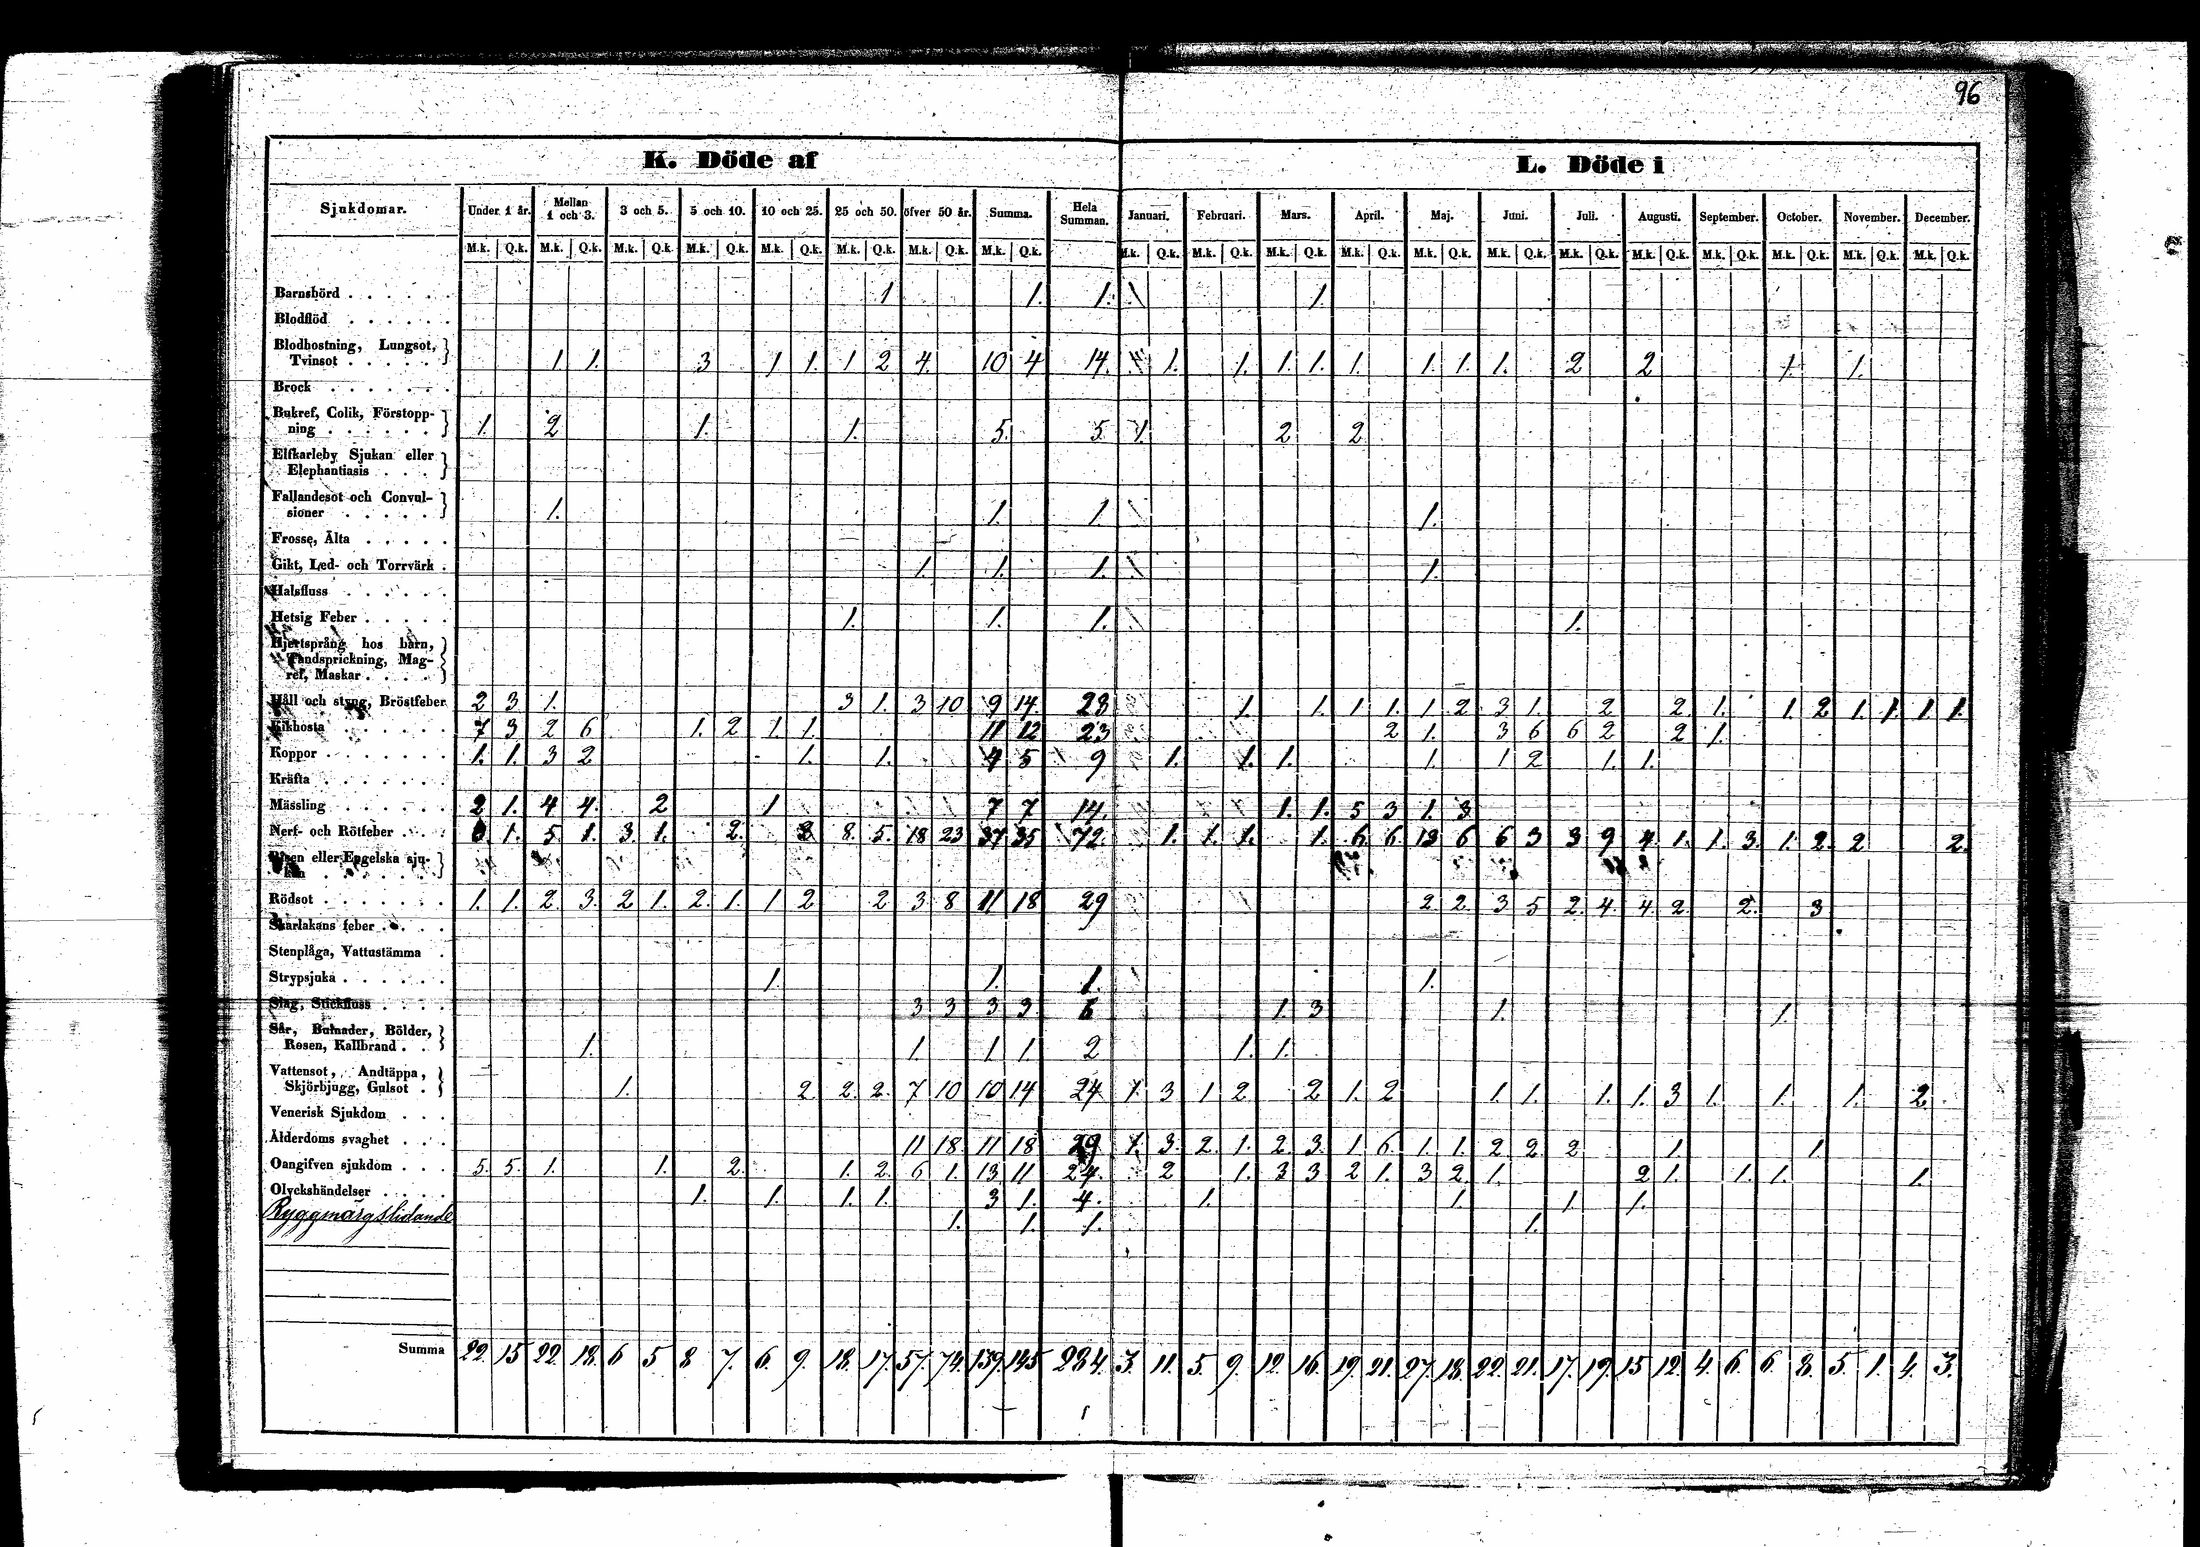 96
K. Döde af
L. Döde i
Sjukdomar. Under 1 år. Mellan 1 och 3. 3 och 5. 5 och 10. 10 och 25. 25 och 50. öfver 50 år. Summa. Hela Summan. Januari. Februari. Mars. April. Maj. Juni. Juli. Augusti. September. October. November. December.
M.k. Q.k. M.k. Q.k. M.k. Q.k. M.k. Q.k. M.k. Q.k. M.k. Q.k. M.k. Q.k. M.k. Q.k. M.k. Q.k. M.k. Q.k. M.k. Q.k. M.k. Q.k. M.k. Q.k. M.k. Q.k. M.k. Q.k. M.k. Q.k. M.k. Q.k. M.k. Q.k. M.k. Q.k. M.k. Q.k.
Barnsbörd . . . . . . 1 1. 1. 1.
Blodflöd . . . . . .
Blodhostning, Lungsot,
Tvinsot . . . . . 1. 1. 3 1 1. 1 2 4. 10 4 14. 1. 1. 1. 1. 1. 1. 1. 1. 2 2 1. 1.
Brock . . . . . . .
Bukref, Colik, Förstopp-
ning . . . . . . 1. 2 1. 1. 5. 5. 1. 2 2
Elfkarleby Sjukan eller
Elephantiasis . . .
Fallandesot och Convul-
sioner . . . . . 1. 1. 1 1.
Frossa, Älta . . . . .
Gikt, Led- och Torrvärk . 1. 1. 1. 1.
Halsfluss . . . . . .
Hetsig Feber . . . . . 1. 1. 1. 1.
Hjertsprång hos barn,
Tandsprickning, Mag-
ref, Maskar . . . .
Håll och styng, Bröstfeber 2 3 1. 3 1. 3 10 9 14. 23 1. 1. 1. 1. 1. 2 3 1. 2 2 1. 1. 2 1. 1. 1. 1.
Kikhosta . . . . . . 7 3 2 6 1. 2 1. 1. 11 12 23 2 1. 3 6 6 2 2 1.
Koppor . . . . . . . 1. 1. 3 2 1. 1. 4 5 9 1. 1. 1. 1. 1 2 1. 1.
Kräfta . . . . . . .
Mässling . . . . . . 2 1. 4 4. 2 1 7 7 14. 1. 1. 5 3 1. 3
Nerf- och Rötfeber . . . 3. 1. 5. 1. 3. 1. 2. 3 8. 5. 18 23 37 35 72. 1. 1. 1. 1. 6 6. 13 6 6 3 3 9 4. 1. 1. 3. 1. 2. 2. 2.
Risen eller Engelska sju-
kan . . . . . . .
Rödsot . . . . . . . 1. 1. 2. 3. 2 1. 2. 1. 1 2 2 3 8 11 18 29 2. 2. 3 5 2. 4. 4. 2. 2. 3
Skarlakans feber . . . .
Stenplåga, Vattustämma .
Strypsjuka . . . . . . 1. 1. 1. 1.
Slag, Stickfluss . . . . 3 3 3 3. 6 1. 3 1. 1.
Sår, Bulnader, Bölder,
Rosen, Kallbrand . . 1. 1 1 1 2 1. 1.
Vattensot, Andtäppa,
Skjörbjugg, Gulsot . 1. 2. 2. 2. 7 10 10 14 24. 1. 3 1 2 2 1. 2 1. 1. 1. 1. 3 1. 1. 1. 2.
Venerisk Sjukdom . . .
Ålderdoms svaghet . . . 11 18. 11 18 29 1. 3. 2. 1. 2. 3. 1 6 1. 1. 2 2 2 1. 1
Oangifven sjukdom . . . 5. 5. 1. 1. 2. 1. 2. 6 1. 13 11 24. 2 1. 3 3 2 1. 3 2. 1. 2 1. 1. 1. 1.
Olyckshändelser . . . . 1. 1. 1. 1. 3 1. 4. 1. 1. 1 1.
Ryggmärgslidande 1. 1. 1. 1.
Summa 22. 15 22. 18. 6 5 8 7. 6. 9. 18. 17. 57. 74. 139. 145 284. 3. 11. 5. 9. 12. 16. 19. 21. 27. 18. 22. 21. 17. 19. 15 12. 4. 6. 6. 8. 5. 1. 4. 3.